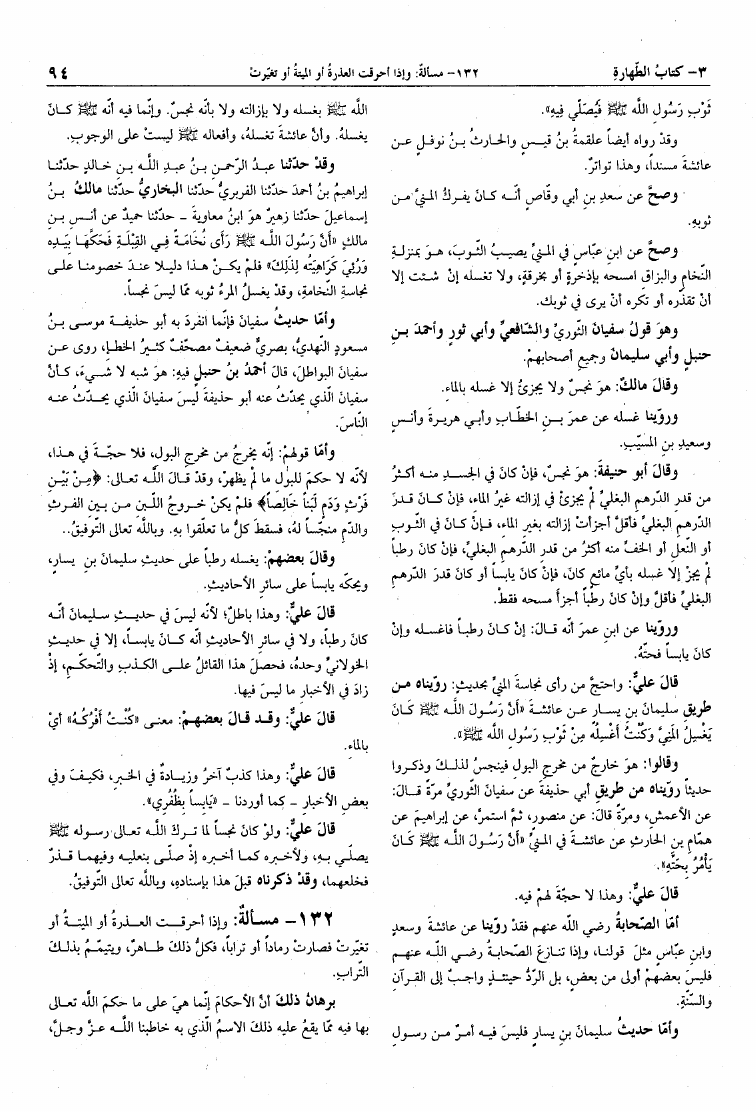 ٣- كتابُ الطَّهارةِ
١٣٢- مسألةٌ: وإذا أحرقت العذرةُ أو الميتةُ أو تغيّرتْ
٩٤
ثَوْبِ رَسُولِ اللَّه ﷺ فَيُصَلِّي فِيهِ».
وقدْ رواه أيضاً علقمةُ بنُ قيسٍ والحارثُ بنُ نوفلٍ عن
عائشةَ مسنداً، وهذا تواترٌ.
وصحَّ عن سعدِ بنِ أبي وقَّاصٍ أنَّه كانَ يفركُ المنيَّ من
ثوبهِ.
وصحَّ عن ابنِ عبَّاسٍ في المنيِّ يصيبُ الثَّوبَ، هوَ بمنزلةِ
النُّخامِ والبزاقِ امسحه بإذخرةٍ أو بخرقةٍ، ولا تغسله إنْ شئت إلا
أنْ تقذّره أو تكره أنْ يرى في ثوبك.
وهوَ قولُ سفيانَ الثَّوريِّ والشَّافعيِّ وأبي ثورٍ وأحمدَ بنِ
حنبلٍ وأبي سليمانَ وجميعِ أصحابهمْ.
وقالَ مالكٌ: هوَ نجسٌ ولا يجزئُ إلا غسله بالماءِ.
وروِّينا غسله عن عمرَ بنِ الخطَّابِ وأبي هريرةَ وأنسٍ
وسعيدِ بنِ المسيّبِ.
وقالَ أبو حنيفةَ: هوَ نجسٌ، فإنْ كانَ في الجسدِ منه أكثرُ
من قدرِ الدِّرهمِ البغليِّ لم يجزئْ في إزالته غيرُ الماءِ، فإنْ كانَ قدرَ
الدِّرهمِ البغليِّ فأقلَّ أجزأتْ إزالته بغيرِ الماءِ، فإنْ كانَ في الثَّوبِ
أو النَّعلِ أو الخفِّ منه أكثرُ من قدرِ الدِّرهمِ البغليِّ، فإنْ كانَ رطباً
لم يجزْ إلا غسله بأيِّ مائعٍ كانَ، فإنْ كانَ يابساً أو كانَ قدرَ الدِّرهمِ
البغليِّ فأقلَّ وإنْ كانَ رطباً أجزأ مسحه فقطْ.
وروِّينا عن ابنِ عمرَ أنّه قالَ: إنْ كانَ رطباً فاغسله وإنْ
كانَ يابساً فحتّهُ.
قالَ عليٌّ: واحتجَّ من رأى نجاسةَ المنيِّ بحديثٍ: روّيناه من
طريقِ سليمانَ بنِ يسارٍ عن عائشةَ «أَنَّ رَسُولَ اللَّه ﷺ كَانَ
يَغْسِلُ المَنِيَّ وَكُنْتُ أَغْسِلُه مِنْ ثَوْبِ رَسُولِ اللَّه ﷺ».
وقالوا: هوَ خارجٌ من مخرجِ البولِ فينجسُ لذلكَ وذكروا
حديثاً روّيناه من طريقِ أبي حذيفةَ عن سفيانَ الثَّوريِّ مرّةً قالَ:
عن الأعمشِ، ومرّةً قالَ: عن منصورٍ، ثمَّ استمرَّ، عن إبراهيمَ عن
همّامِ بنِ الحارثِ عن عائشةَ في المنيِّ «أَنَّ رَسُولَ اللَّه ﷺ كَانَ
يَأْمُرُ بِحَتِّهِ».
قالَ عليٌّ: وهذا لا حجّةَ لهمْ فيه.
أمّا الصّحابةُ رضي الله عنهم فقدْ روّينا عن عائشةَ وسعدٍ
وابنِ عبّاسٍ مثلَ قولنا، وإذا تنازعَ الصّحابةُ رضي اللَّه عنهم
فليسَ بعضهمْ أولى من بعضٍ، بل الرّدُّ حينئذٍ واجبٌ إلى القرآنِ
والسّنّةِ.
وأمّا حديثُ سليمانَ بنِ يسارٍ فليسَ فيه أمرٌ من رسولِ
اللَّه ﷺ بغسله ولا بإزالته ولا بأنّه نجسٌ. وإنّما فيه أنّه ﷺ كانَ
يغسلهُ. وأنَّ عائشةَ تغسلهُ، وأفعاله ﷺ ليستْ على الوجوبِ.
وقدْ حدّثنا عبدُ الرّحمنِ بنُ عبدِ اللَّه بنِ خالدٍ حدّثنا
إبراهيمُ بنُ أحمدَ حدّثنا الفربريُّ حدّثنا البخاريُّ حدّثنا مالكُ بنُ
إسماعيلَ حدّثنا زهيرٌ هوَ ابنُ معاويةَ - حدّثنا حميدٌ عن أنسِ بنِ
مالكٍ «أَنَّ رَسُولَ اللَّه ﷺ رَأَى نُخَامَةً فِي القِبْلَةِ فَحَكَّهَا بِيَدِه
وَرُئِيَ كَرَاهِيَتُه لِذَلِكَ» فلم يكنْ هذا دليلا عندَ خصومنا على
نجاسةِ النّخامةِ، وقدْ يغسلُ المرءُ ثوبه ممّا ليسَ نجساً.
وأمّا حديثُ سفيانَ فإنّما انفردَ به أبو حذيفةَ موسى بنُ
مسعودٍ النّهديُّ، بصريٌّ ضعيفٌ مصحّفٌ كثيرُ الخطإ، روى عن
سفيانَ البواطلَ، قالَ أحمدُ بنُ حنبلٍ فيهِ: هوَ شبه لا شيءَ، كأنَّ
سفيانَ الّذي يحدّثُ عنه أبو حذيفةَ ليسَ سفيانَ الّذي يحدّثُ عنه
النّاسُ.
وأمّا قولهمْ: إنّه يخرجُ من مخرجِ البولِ، فلا حجّةَ في هذا،
لأنّه لا حكمَ للبولِ ما لم يظهرْ، وقدْ قالَ اللَّه تعالى: ﴿مِنْ بَيْنِ
فَرْثٍ وَدَمٍ لَبَناً خَالِصاً﴾ فلم يكنْ خروجُ اللّبنِ من بينِ الفرثِ
والدّمِ منجّساً لهُ، فسقطَ كلُّ ما تعلّقوا بهِ. وباللَّه تعالى التّوفيقُ..
وقالَ بعضهمْ: يغسله رطباً على حديثِ سليمانَ بنِ يسارٍ،
ويحكّه يابساً على سائرِ الأحاديثِ.
قالَ عليٌّ: وهذا باطلٌ؛ لأنّه ليسَ في حديثِ سليمانَ أنّه
كانَ رطباً، ولا في سائرِ الأحاديثِ أنّه كانَ يابساً، إلا في حديثِ
الخولانيِّ وحدهُ، فحصلَ هذا القائلُ على الكذبِ والتّحكّمِ، إذْ
زادَ في الأخبارِ ما ليسَ فيها.
قالَ عليٌّ: وقد قالَ بعضهمْ: معنى «كُنْتُ أَفْرُكُهُ» أيْ
بالماءِ.
قالَ عليٌّ: وهذا كذبٌ آخرُ وزيادةٌ في الخبرِ، فكيفَ وفي
بعضِ الأخبارِ - كما أوردنا - «يَابِساً بِظُفْرِي».
قالَ عليٌّ: ولوْ كانَ نجساً لما تركَ اللَّه تعالى رسوله ﷺ
يصلّي بهِ، ولأخبره كما أخبره إذْ صلّى بنعليه وفيهما قذرٌ
فخلعهما، وقدْ ذكرناه قبلَ هذا بإسنادهِ، وباللَّه تعالى التّوفيقُ.
١٣٢- مسألةٌ: وإذا أحرقت العذرةُ أو الميتةُ أو
تغيّرتْ فصارتْ رماداً أو تراباً، فكلُّ ذلكَ طاهرٌ، ويتيمّمُ بذلكَ
التّرابِ.
برهانُ ذلكَ أنَّ الأحكامَ إنّما هيَ على ما حكمَ اللَّه تعالى
بها فيه ممّا يقعُ عليه ذلكَ الاسمُ الّذي به خاطبنا اللَّه عزَّ وجلَّ،